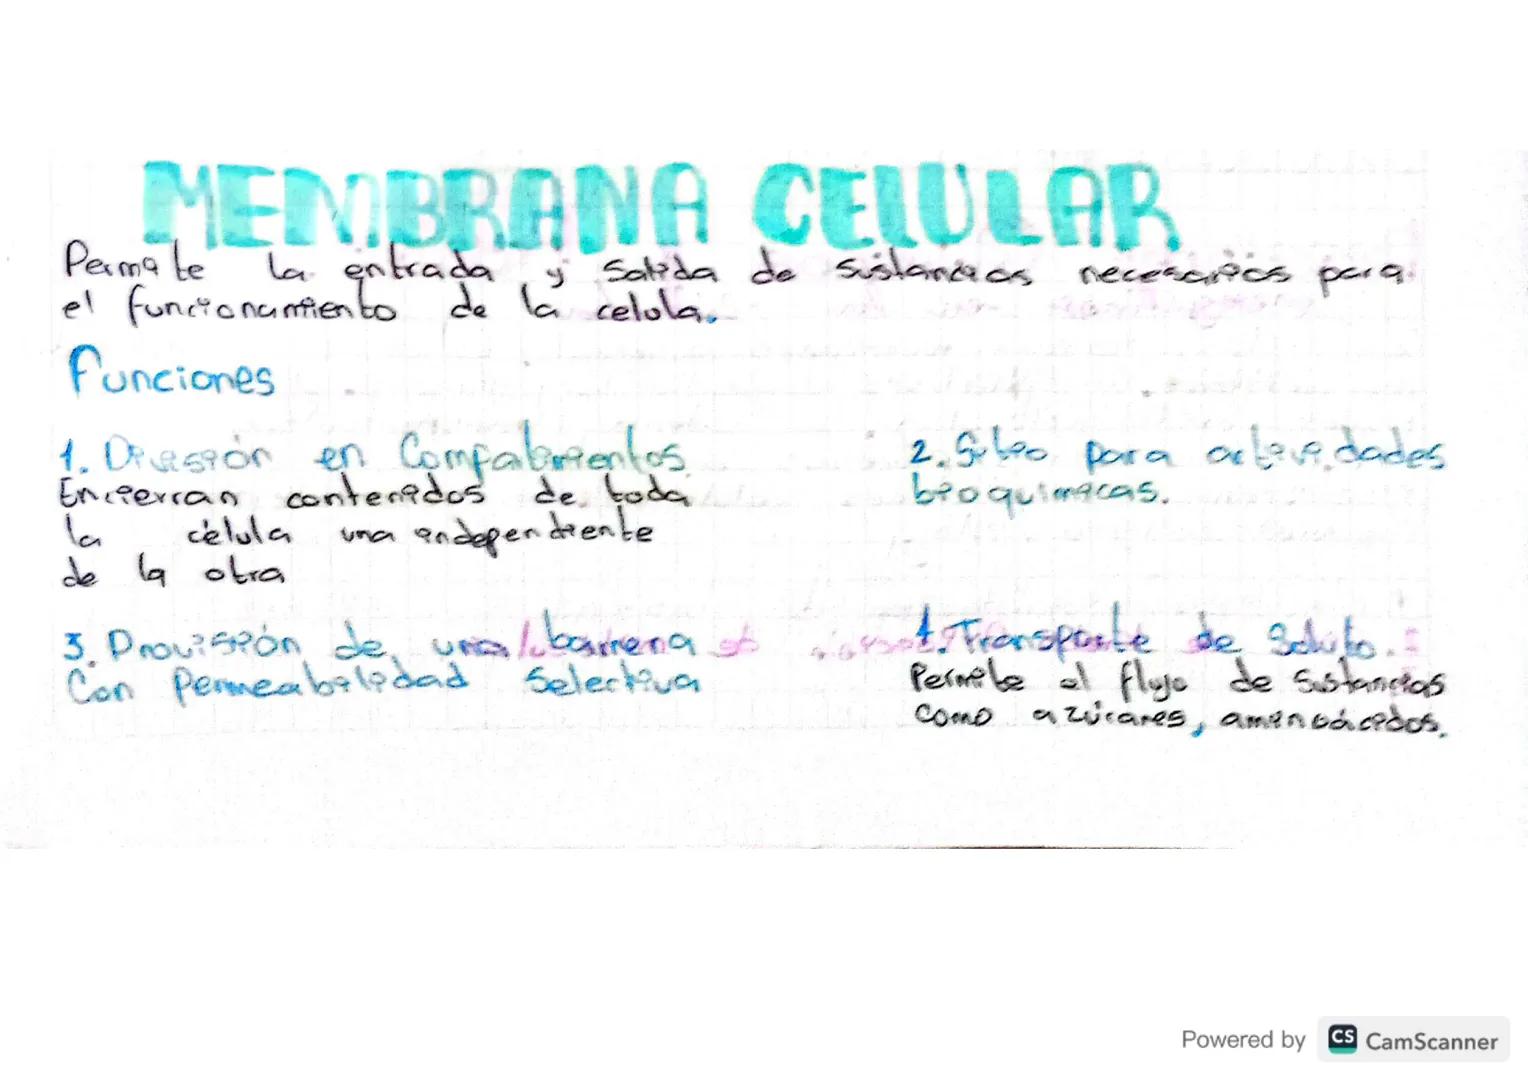 MEMBRANA CELULAR
Permite la entrada y Salida de Sustancias necesarios para
el funcionamiento de la celula.
Funciones
1. División en Compatimientos
Encierran contenidos de toda
la célula una independiente
de la otra
2. Sitio para actividades
bioquimicas.
3. Provisión de una barrera
Con Permeabilidad Selectiva
4. Transporte de Soluto.
Permite el flujo de Sustancias
Como azúcares, aminoácidos.
Powered by CS CamScanner